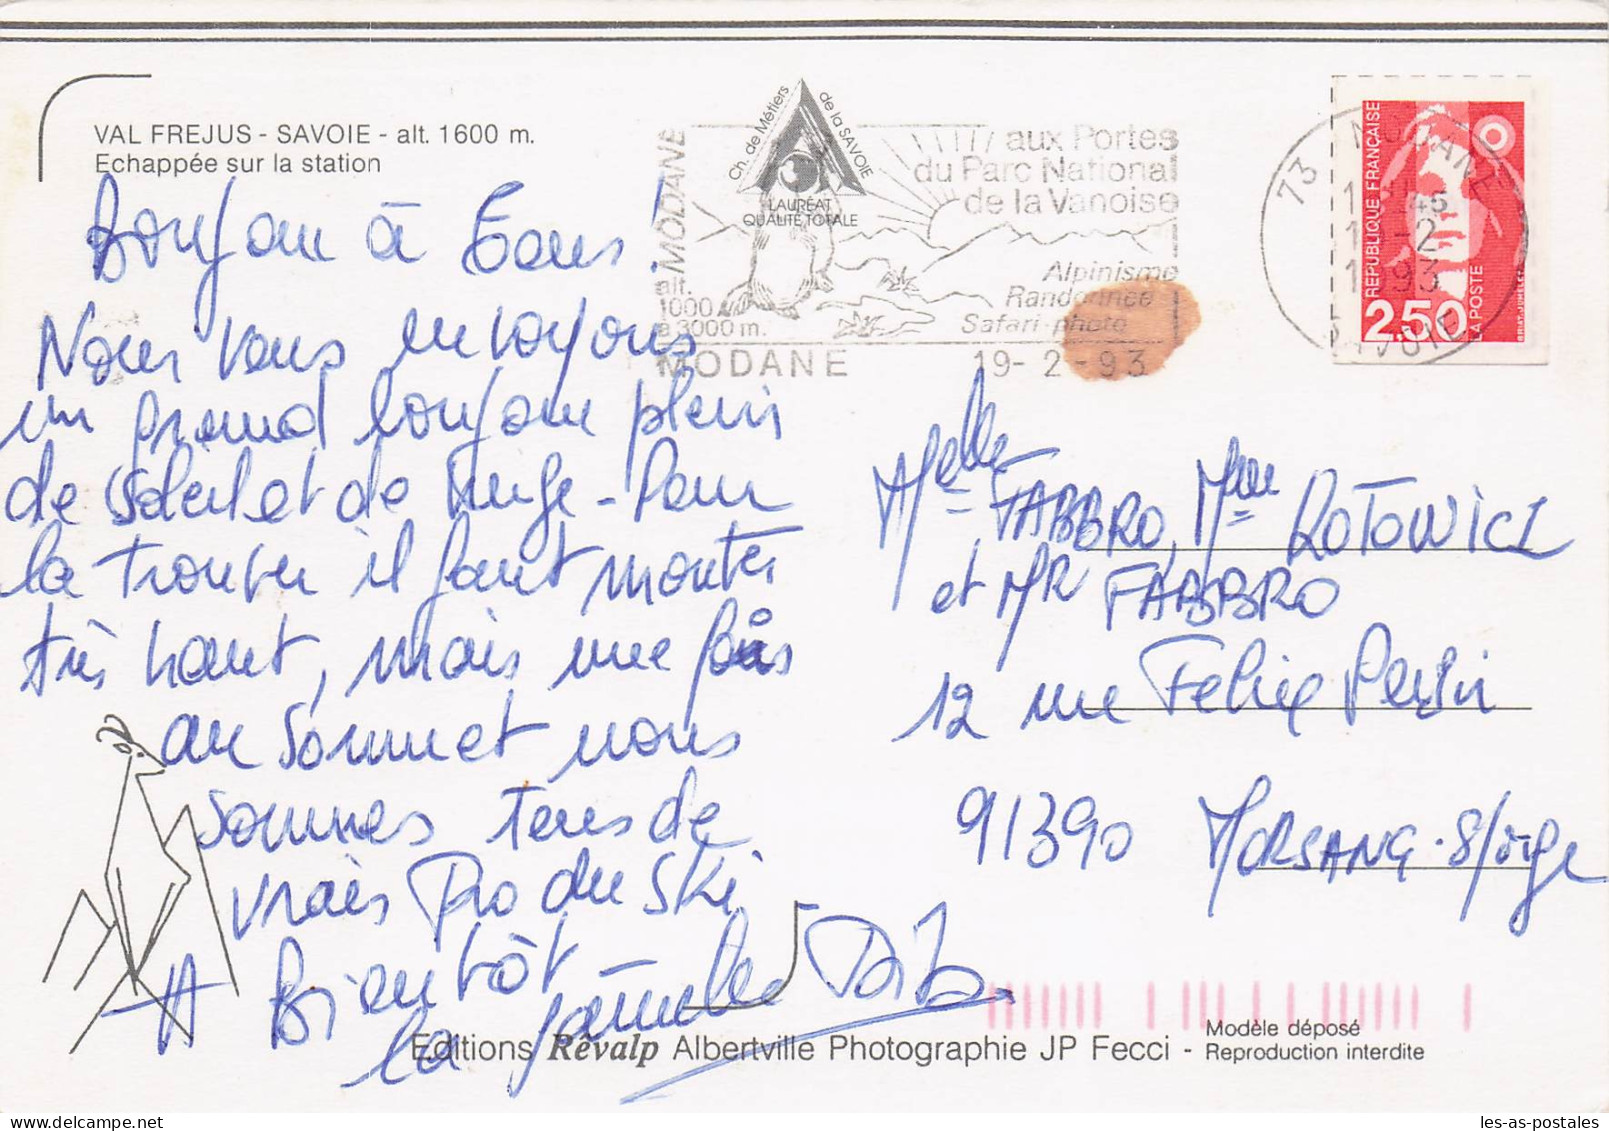 VAL FREJUS - SAVOIE - alt. 1600 m.
Echappée sur la station
Bonjour à Tous
Nous vous envoyons
un grand bonjour plein
de soleil et de neige - Pour
la trouver il faut monter
très haut, mais une fois
au sommet nous
sommes tous de
vrais Pro du Ski
A Bientôt
la famille
MODANE
alt.
1000
à 3000 m.
Ch. de Métiers
de la SAVOIE
LAURÉAT
QUALITÉ TOTALE
aux Portes
du Parc National
de la Vanoise
Alpinisme
Randonnée
Safari-photo
MODANE 19-2-93
73 MODANE
SAVOIE
RÉPUBLIQUE FRANÇAISE
2,50
LA POSTE
BRIAT-JUMELET
Melle FABBRO, Mme ROTOWICZ
et MR FABBRO
12 rue Felix Perin
91390 MORSANG. S/orge
Editions Rêvalp Albertville Photographie JP Fecci -
Modèle déposé
Reproduction interdite
les-as-postales